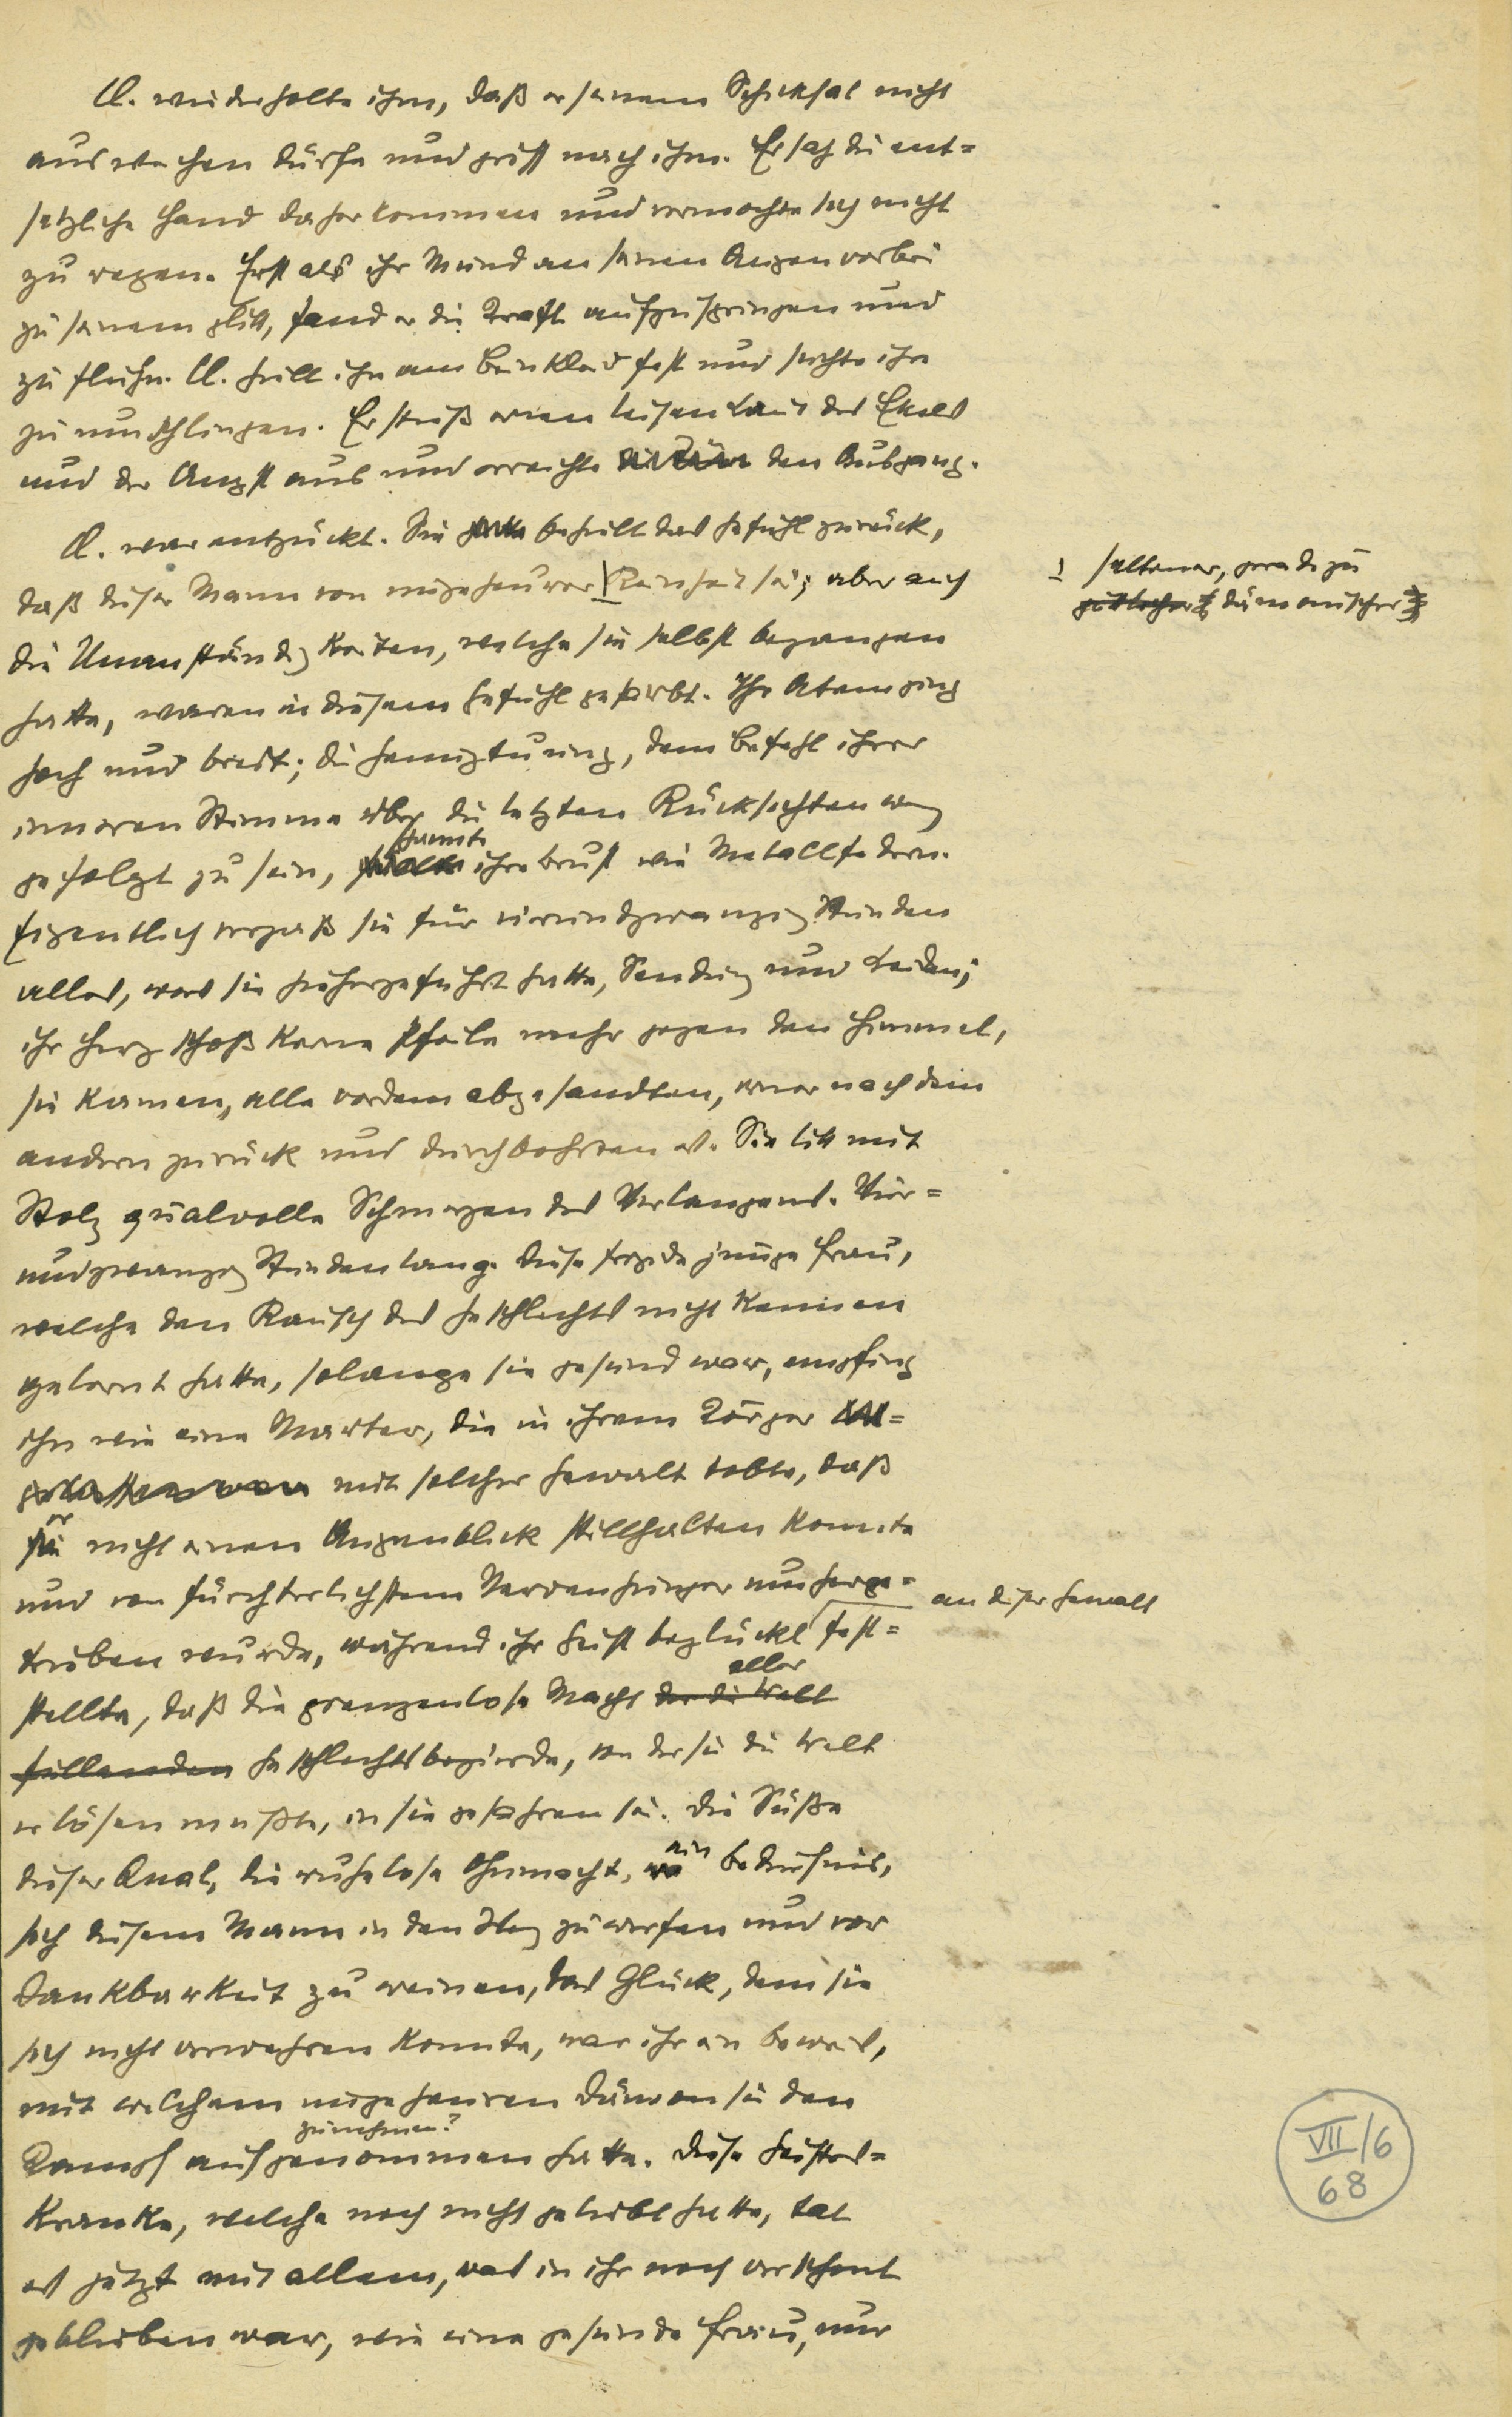 Cl. wiederholte ihm, daß er seinem Schicksal nicht
ausweichen dürfe und griff nach ihm. Er sah die ent=
setzliche Hand daherkommen und vermochte sich nicht
zu regen. Erst als ihr Mund an seinen Augen vorbei
zu seinem glitt, fand er die Kraft aufzuspringen und
zu fliehn. Cl. hielt ihn am Beinkleid fest und suchte ihn
zu umschlingen. Er stieß einen leisen Laut des Ekels
und der Angst aus und erreichte die Tür den Ausgang.
Cl. war entzückt. Sie hatte behielt das Gefühl zurück,
daß dieser Mann von ungeheurer | Reinheit sei; aber auch
| seltener, geradezu
göttlicher dämonischer
die Unanständigkeiten, welche sie selbst begangen
hatte, waren in diesem Gefühl gefärbt. Ihr Atem ging
hoch und breit; die Genugtuung, dem Befehl ihrer
inneren Stimme über die letzten Rücksichten weg
gefolgt zu sein, spannte ihre Brust wie Metallfedern.
Eigentlich vergaß sie für vierundzwanzig Stunden
alles, was sie hiehergeführt hatte, Sendung und Leiden;
ihr Herz schoß keine Pfeile mehr gegen den Himmel,
sie kamen, alle vordem abgesandten, einer nach dem
andern zurück und durchbohrten es. Sie litt mit
Stolz qualvolle Schmerzen des Verlangens. Vier=
undzwanzig Stunden lang. Diese frigide junge Frau,
welche den Rausch des Geschlechts nicht kennen
gelernt hatte, solange sie gesund war, empfing
ihn wie eine Marter, die in ihrem Körper
mit solcher Gewalt tobte, daß
sie er nicht einen Augenblick stillhalten konnte
und von fürchterlichstem Nervenhunger umherge=
trieben wurde, während ihr Geist beglückt fest=
an dieser Gewalt
stellte, daß die grenzenlose Macht der die Welt aller
füllenden Geschlechtsbegierde, von der sie die Welt
erlösen mußte, in sie gefahren sei. Die Süße
dieser Qual, die ruhelose Ohnmacht, ein Bedürfnis,
sich diesem Mann in den Weg zu werfen und vor
Dankbarkeit zu weinen, das Glück, dem sie
sich nicht verwehren konnte, war ihr ein Beweis,
mit welchem ungeheuren Dämon sie den
zunehmen?
Kampf aufgenommen hatte. Diese Geistes=
kranke, welche noch nicht geliebt hatte, tat
es jetzt mit allem, was in ihr noch verschont
geblieben war, wie eine gesunde Frau, nur
VII/6
68